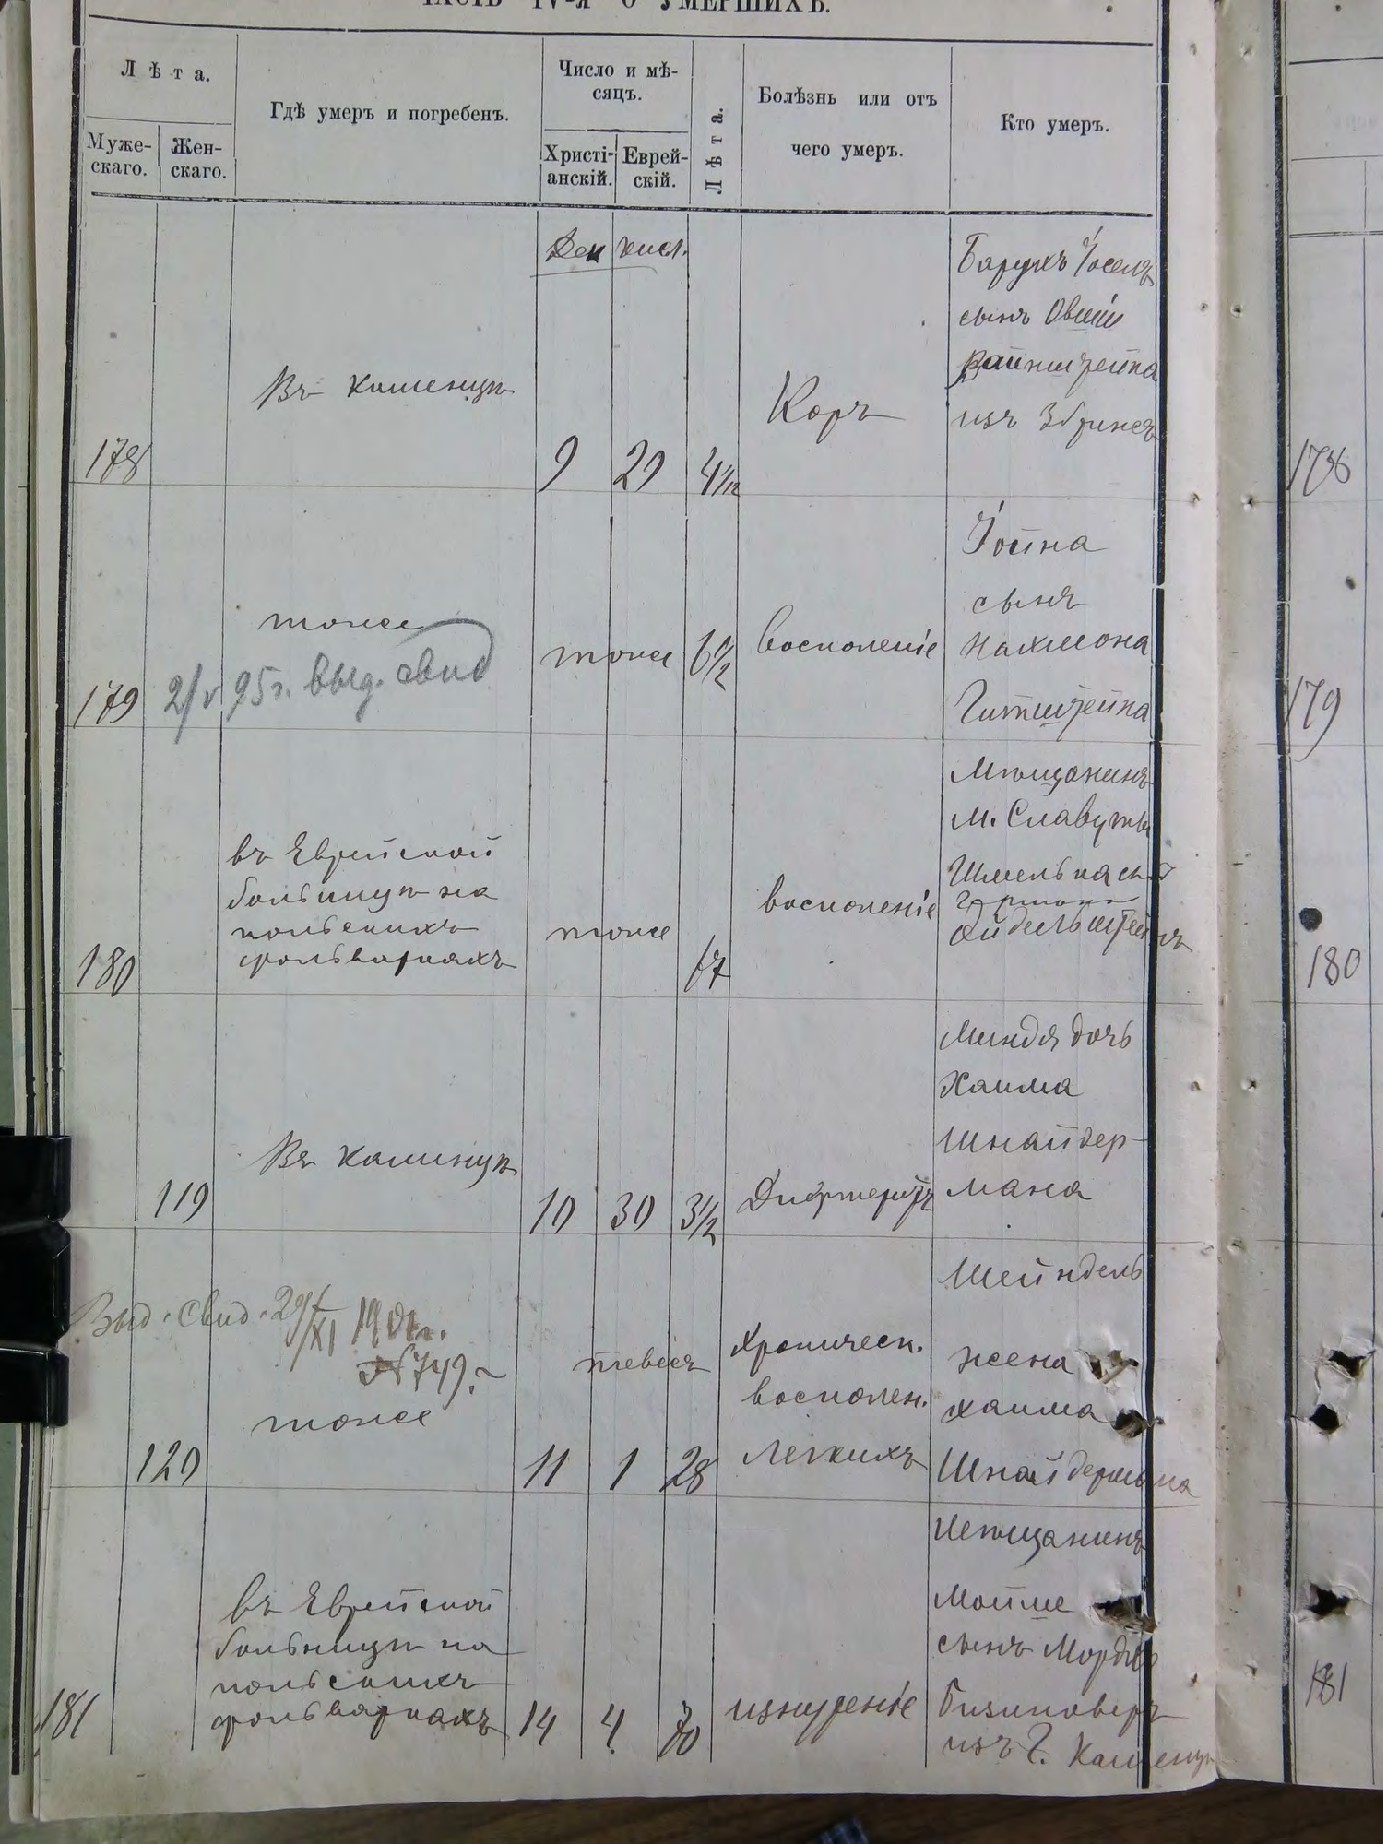 ЧАСТЬ IV-я О УМЕРШИХЪ.
Лѣта.
Муже-
скаго.
Жен-
скаго.
Гдѣ умеръ и погребенъ.
Число и мѣ-
сяцъ.
Христі-
анскій.
Еврей-
скій.
Лѣта.
Болѣзнь или отъ
чего умеръ.
Кто умеръ.
Дек кисл.
178
Въ каменцѣ
9 29 4/12
Коръ
Барухъ Іоселъ
сынъ Овшіи
из
179
тоже
2/V 95 г. выд. свид
тоже 6 1/2
Воспаленіе
Іойна
сынъ
Нахмона
Гитштейна
180
въ Еврейской
больницѣ на
польскихъ
фольваркахъ
тоже
67
воспаленіе
Мѣщанинъ
м. Славуты
Шмелька сынъ
Айдельштейнъ
119
Въ каменцѣ
10 30 3 1/2
Дифтеритъ
Миндя дочь
Хаима
Шнайдер-
мана
120
Выд. свид. 29/XI 1901г.
№ 749.
тоже
тевесъ
11 1 28
Хроническ.
воспален.
легкихъ
Шейндель
жена
хаима
Шнайдермана
181
въ Еврейской
больницѣ на
польскихъ
фольваркахъ
14 4 70
изнуреніе
Мѣщанинъ
Мойше
сынъ Мордко
из г. Каменца
178
179
180
181